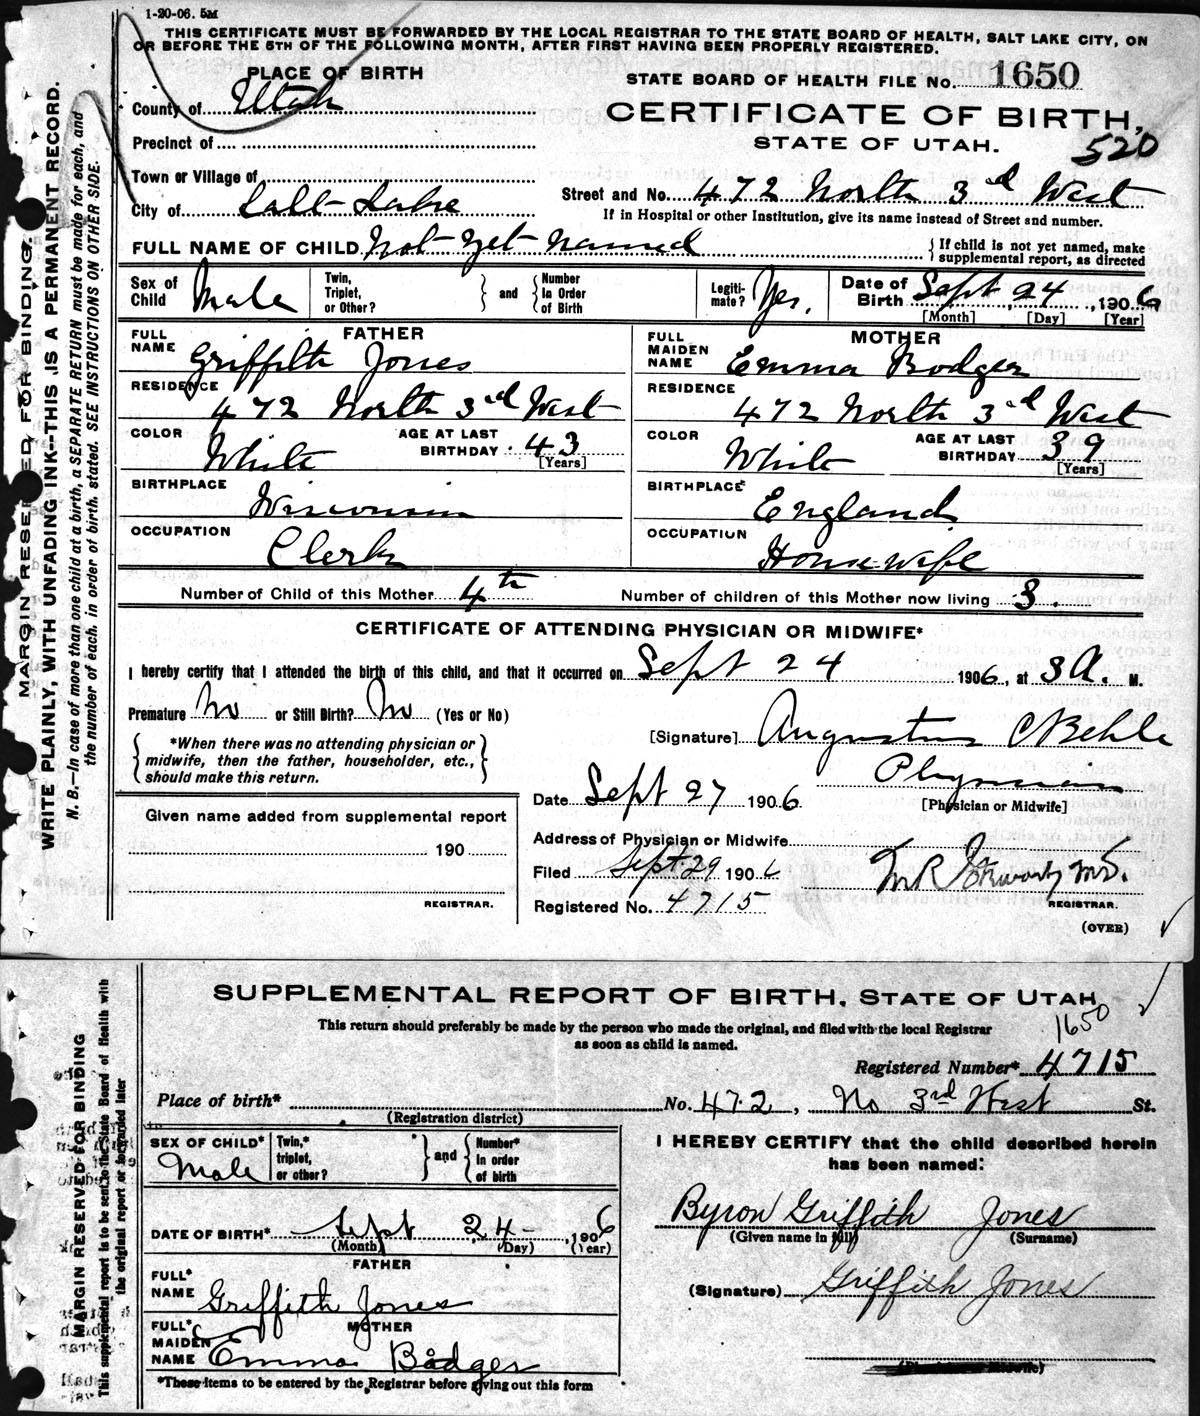 1-20-06. 5M
THIS CERTIFICATE MUST BE FORWARDED BY THE LOCAL REGISTRAR TO THE STATE BOARD OF HEALTH, SALT LAKE CITY, ON
OR BEFORE THE 5TH OF THE FOLLOWING MONTH, AFTER FIRST HAVING BEEN PROPERLY REGISTERED.
PLACE OF BIRTH
STATE BOARD OF HEALTH FILE No. 1650
County of Utah
CERTIFICATE OF BIRTH,
Precinct of
STATE OF UTAH.
520
Town or Village of
Street and No. 472 North 3rd West
City of Salt Lake
If in Hospital or other Institution, give its name instead of Street and number.
FULL NAME OF CHILD Not yet named
If child is not yet named, make
supplemental report, as directed
Sex of Child Male
Twin, Triplet, or Other?
and
Number In Order of Birth
Legiti-mate? Yes.
Date of Birth Sept 24, 1906
[Month] [Day] [Year]
FATHER
FULL NAME Griffith Jones
RESIDENCE 472 North 3rd West
COLOR White
AGE AT LAST BIRTHDAY 43
[Years]
BIRTHPLACE Wisconsin
OCCUPATION Clerk
MOTHER
FULL MAIDEN NAME Emma Bodger
RESIDENCE 472 North 3rd West
COLOR White
AGE AT LAST BIRTHDAY 39
[Years]
BIRTHPLACE England
OCCUPATION Housewife
Number of Child of this Mother 4th
Number of children of this Mother now living 3.
CERTIFICATE OF ATTENDING PHYSICIAN OR MIDWIFE*
I hereby certify that I attended the birth of this child, and that it occurred on Sept 24 1906, at 3 A. M.
Premature No or Still Birth? No (Yes or No)
*When there was no attending physician or
midwife, then the father, householder, etc.,
should make this return.
[Signature] Augustus C Behle
Physician
[Physician or Midwife]
Date Sept 27 1906
Given name added from supplemental report
190
REGISTRAR.
Address of Physician or Midwife
Filed Sept. 29 1906
M R Stewart, M.D.
REGISTRAR.
Registered No. 4715
(OVER)
MARGIN RESERVED FOR BINDING.
WRITE PLAINLY, WITH UNFADING INK--THIS IS A PERMANENT RECORD.
N. B.—In case of more than one child at a birth, a SEPARATE RETURN must be made for each, and
the number of each, in order of birth, stated. SEE INSTRUCTIONS ON OTHER SIDE.
SUPPLEMENTAL REPORT OF BIRTH, STATE OF UTAH
This return should preferably be made by the person who made the original, and filed with the local Registrar
as soon as child is named.
1650
Registered Number* 4715
Place of birth* No. 472, No 3rd West St.
(Registration district)
SEX OF CHILD* Male
Twin,* triplet, or other?
and
Number* In order of birth
I HEREBY CERTIFY that the child described herein
has been named:
Byron Griffith Jones
(Given name in full) (Surname)
DATE OF BIRTH* Sept 24 1906
(Month) (Day) (Year)
FATHER
FULL* NAME Griffith Jones
(Signature) Griffith Jones
MOTHER
FULL* MAIDEN NAME Emma Badger
(Physician or Midwife)
*These items to be entered by the Registrar before giving out this form
MARGIN RESERVED FOR BINDING
This supplemental report is to be sent to the State Board of Health with
the original report or forwarded later